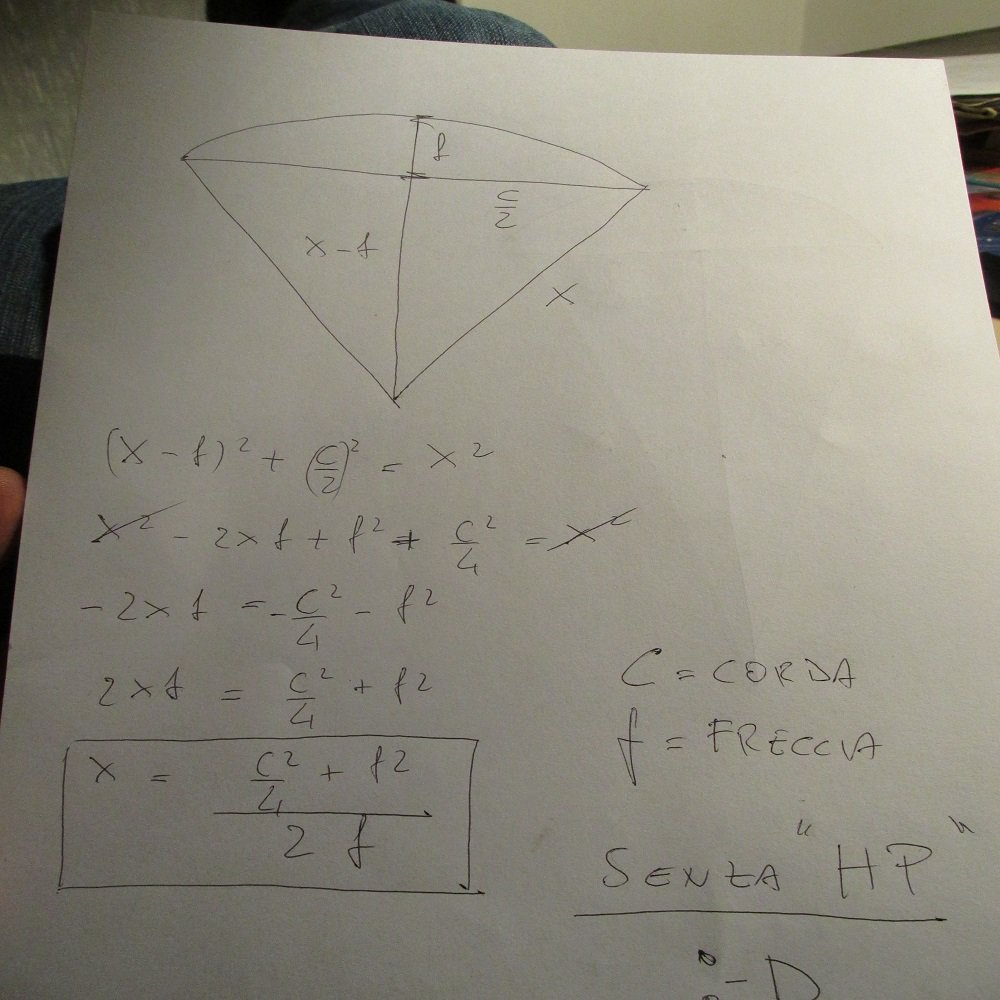 f
C/2
x - f
x
(x - f)² + (C/2)² = x²
x² - 2xf + f² + C²/4 = x²
-2xf = -C²/4 - f²
2xf = C²/4 + f²
x = (C²/4 + f²) / 2f
C = CORDA
f = FRECCIA
SENZA "HP"
:-D